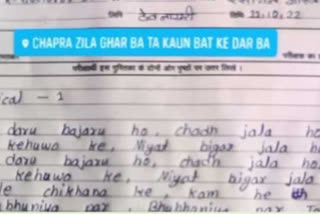 तिथि देवनागरी तिथि 11.10.22
CHAPRA ZILA GHAR BA TA KAUN BAT KE DAR BA
परीक्षार्थी इस पुस्तिका के दोनों ओर पृष्ठों पर उत्तर लिखें।
ical - 1
daru bajaru ho, chadh jala ho
kehuwa ke, Niyat bigar jala h
daru bajaru ho, chadh jala ho.
kehuwa ke, Niyat bigar jala
le chikhana ke, kam he
bhuniya par, Bhubhaniya par